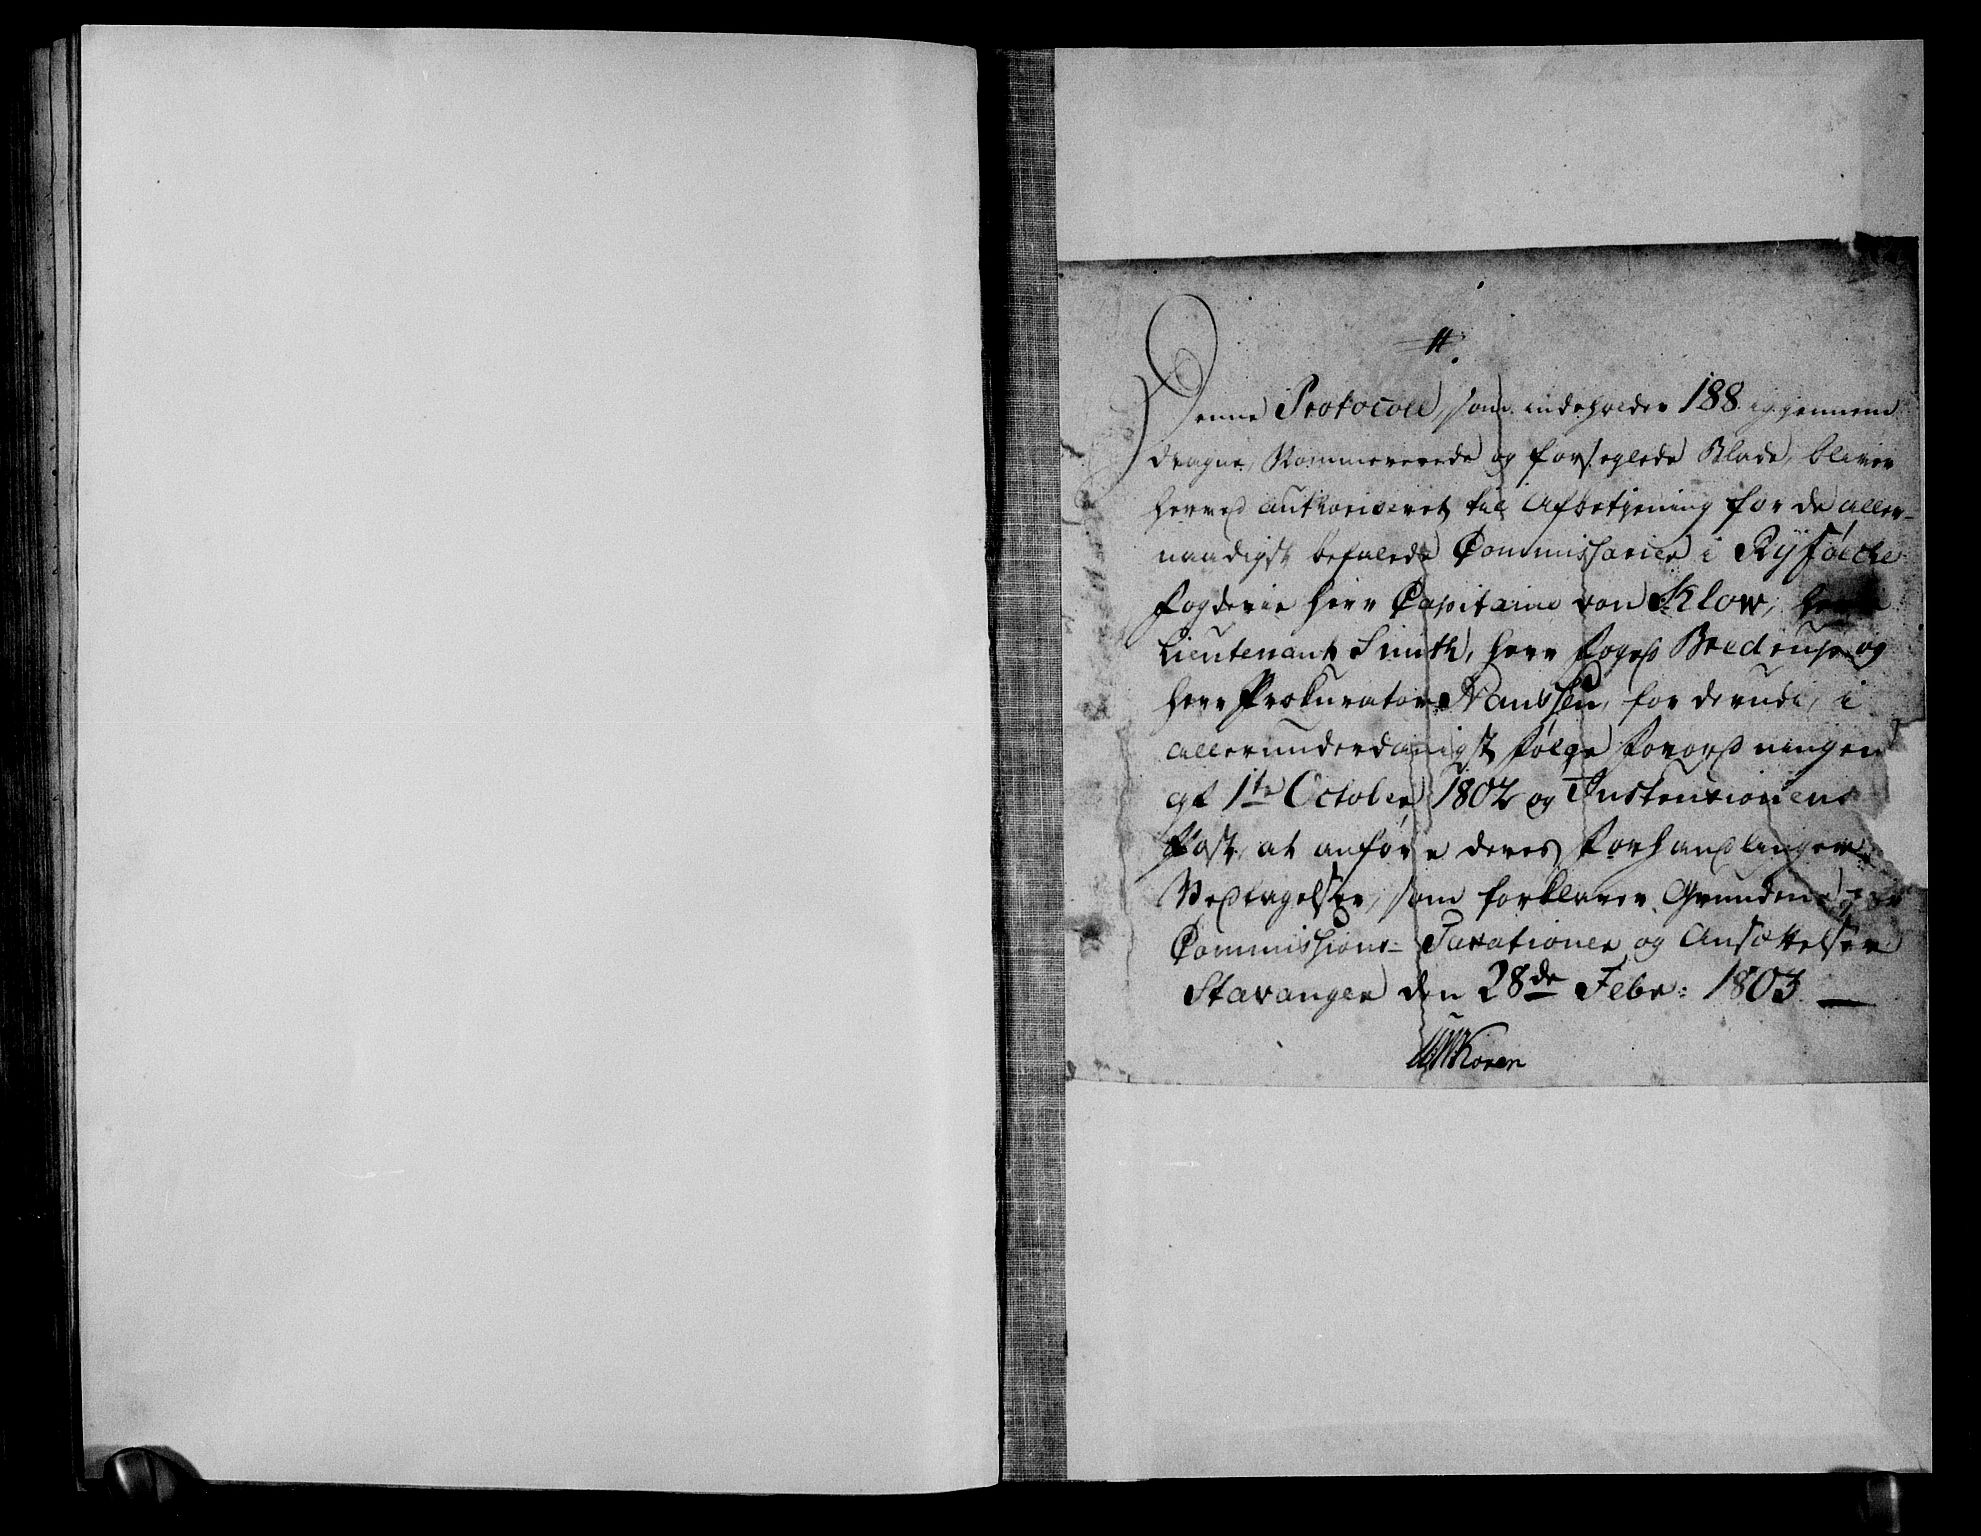 Denne Protocoll, som indeholder 188 igjennem
dragne, Nommererede og forseglede Blade, bliver
herved authoriseret til Afbetjening for de aller-
naadigst befalede Commissarier i Ryfølche
Fogderie Herr Capitaine von Klow, Herr
Lieutenant Smith, Herr Foged Bredrup og
Herr Prokurator Nanssen, for derudi, i
allerunderdanigst følge Forordningen
af 1te October 1802 og Instruxionens
Post, at anføre deres Forhandlinger,
Vedtagelser, som forklarer Grundene
Commissions- Taxationer og Ansættelser
Stavanger den 28de Febr: 1803
Koren